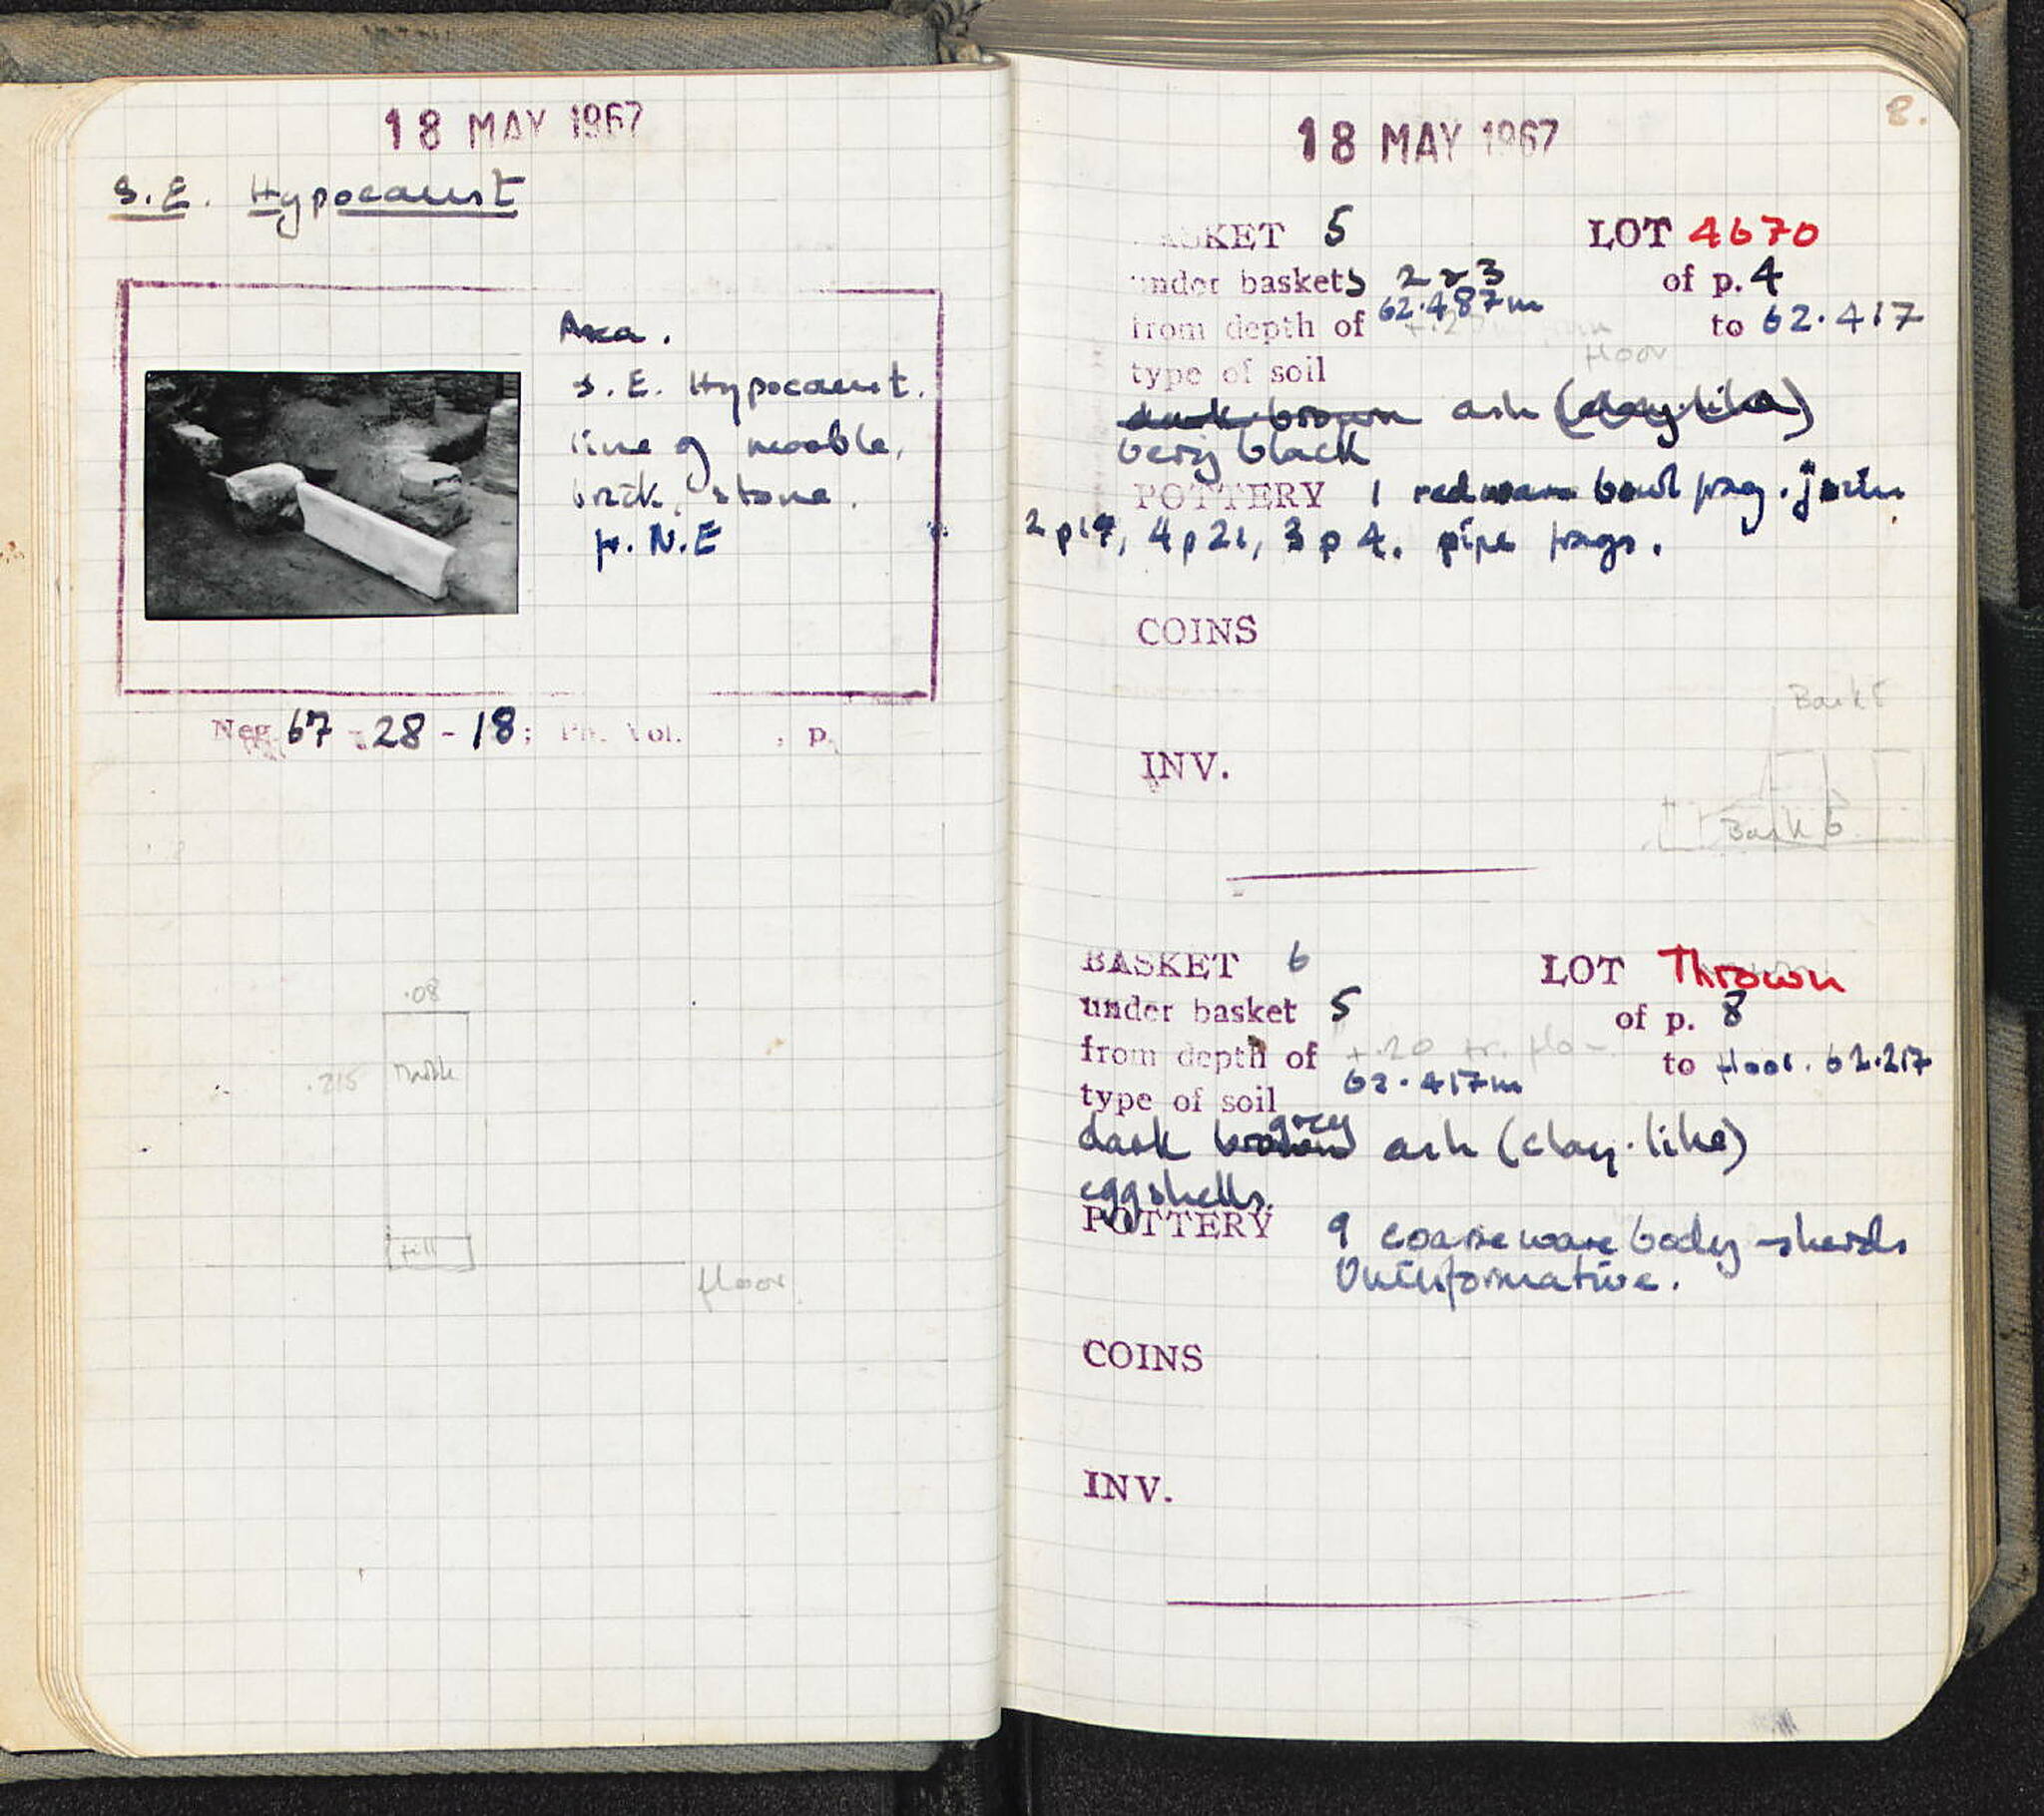 18 MAY 1967
S.E. Hypocaust
Area.
S.E. Hypocaust.
line of marble,
brick, stone.
fr. N.E
Neg 67-28-18; Ph. Vol. , p.
.08
.215
marble
fill
floor
8.
18 MAY 1967
BASKET 5 LOT 4670
under baskets 2 & 3 of p. 4
from depth of 62.487m to 62.417
floor
type of soil
dark brown ash (clay-like)
very black
POTTERY 1 redware bowl frag. joins
2p19, 4p21, 3p4. pipe frags.
COINS
Bask 5
INV.
Bask 6
BASKET 6 LOT Thrown
under basket 5 of p. 8
from depth of +.20 fr. floor to floor. 62.217
62.417m
type of soil
grey
dark brown ash (clay-like)
eggshells.
POTTERY 9 coarse ware body-sherds
Uninformative.
COINS
INV.